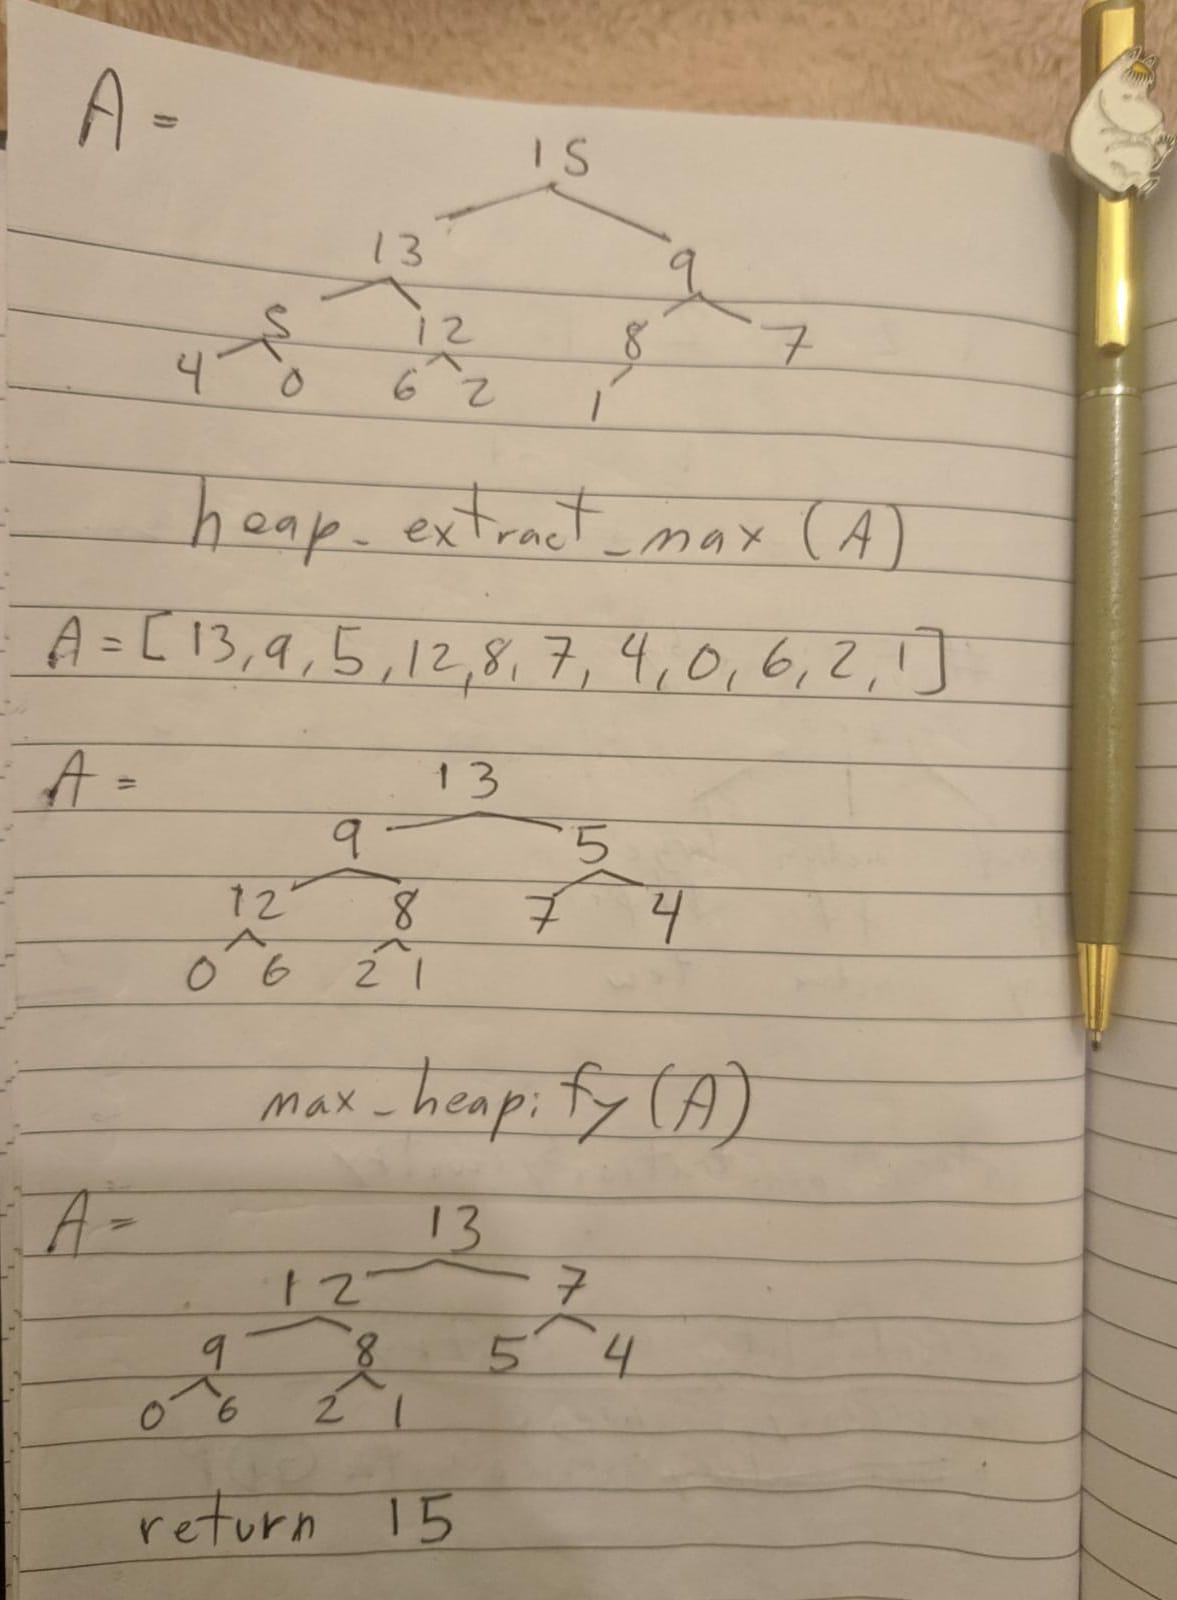 A =
15
13 9
5 12 8 7
4 0 6 2 1
heap_extract_max (A)
A = [13, 9, 5, 12, 8, 7, 4, 0, 6, 2, 1]
A = 13
9 5
12 8 7 4
0 6 2 1
max_heapify (A)
A = 13
12 7
9 8 5 4
0 6 2 1
return 15